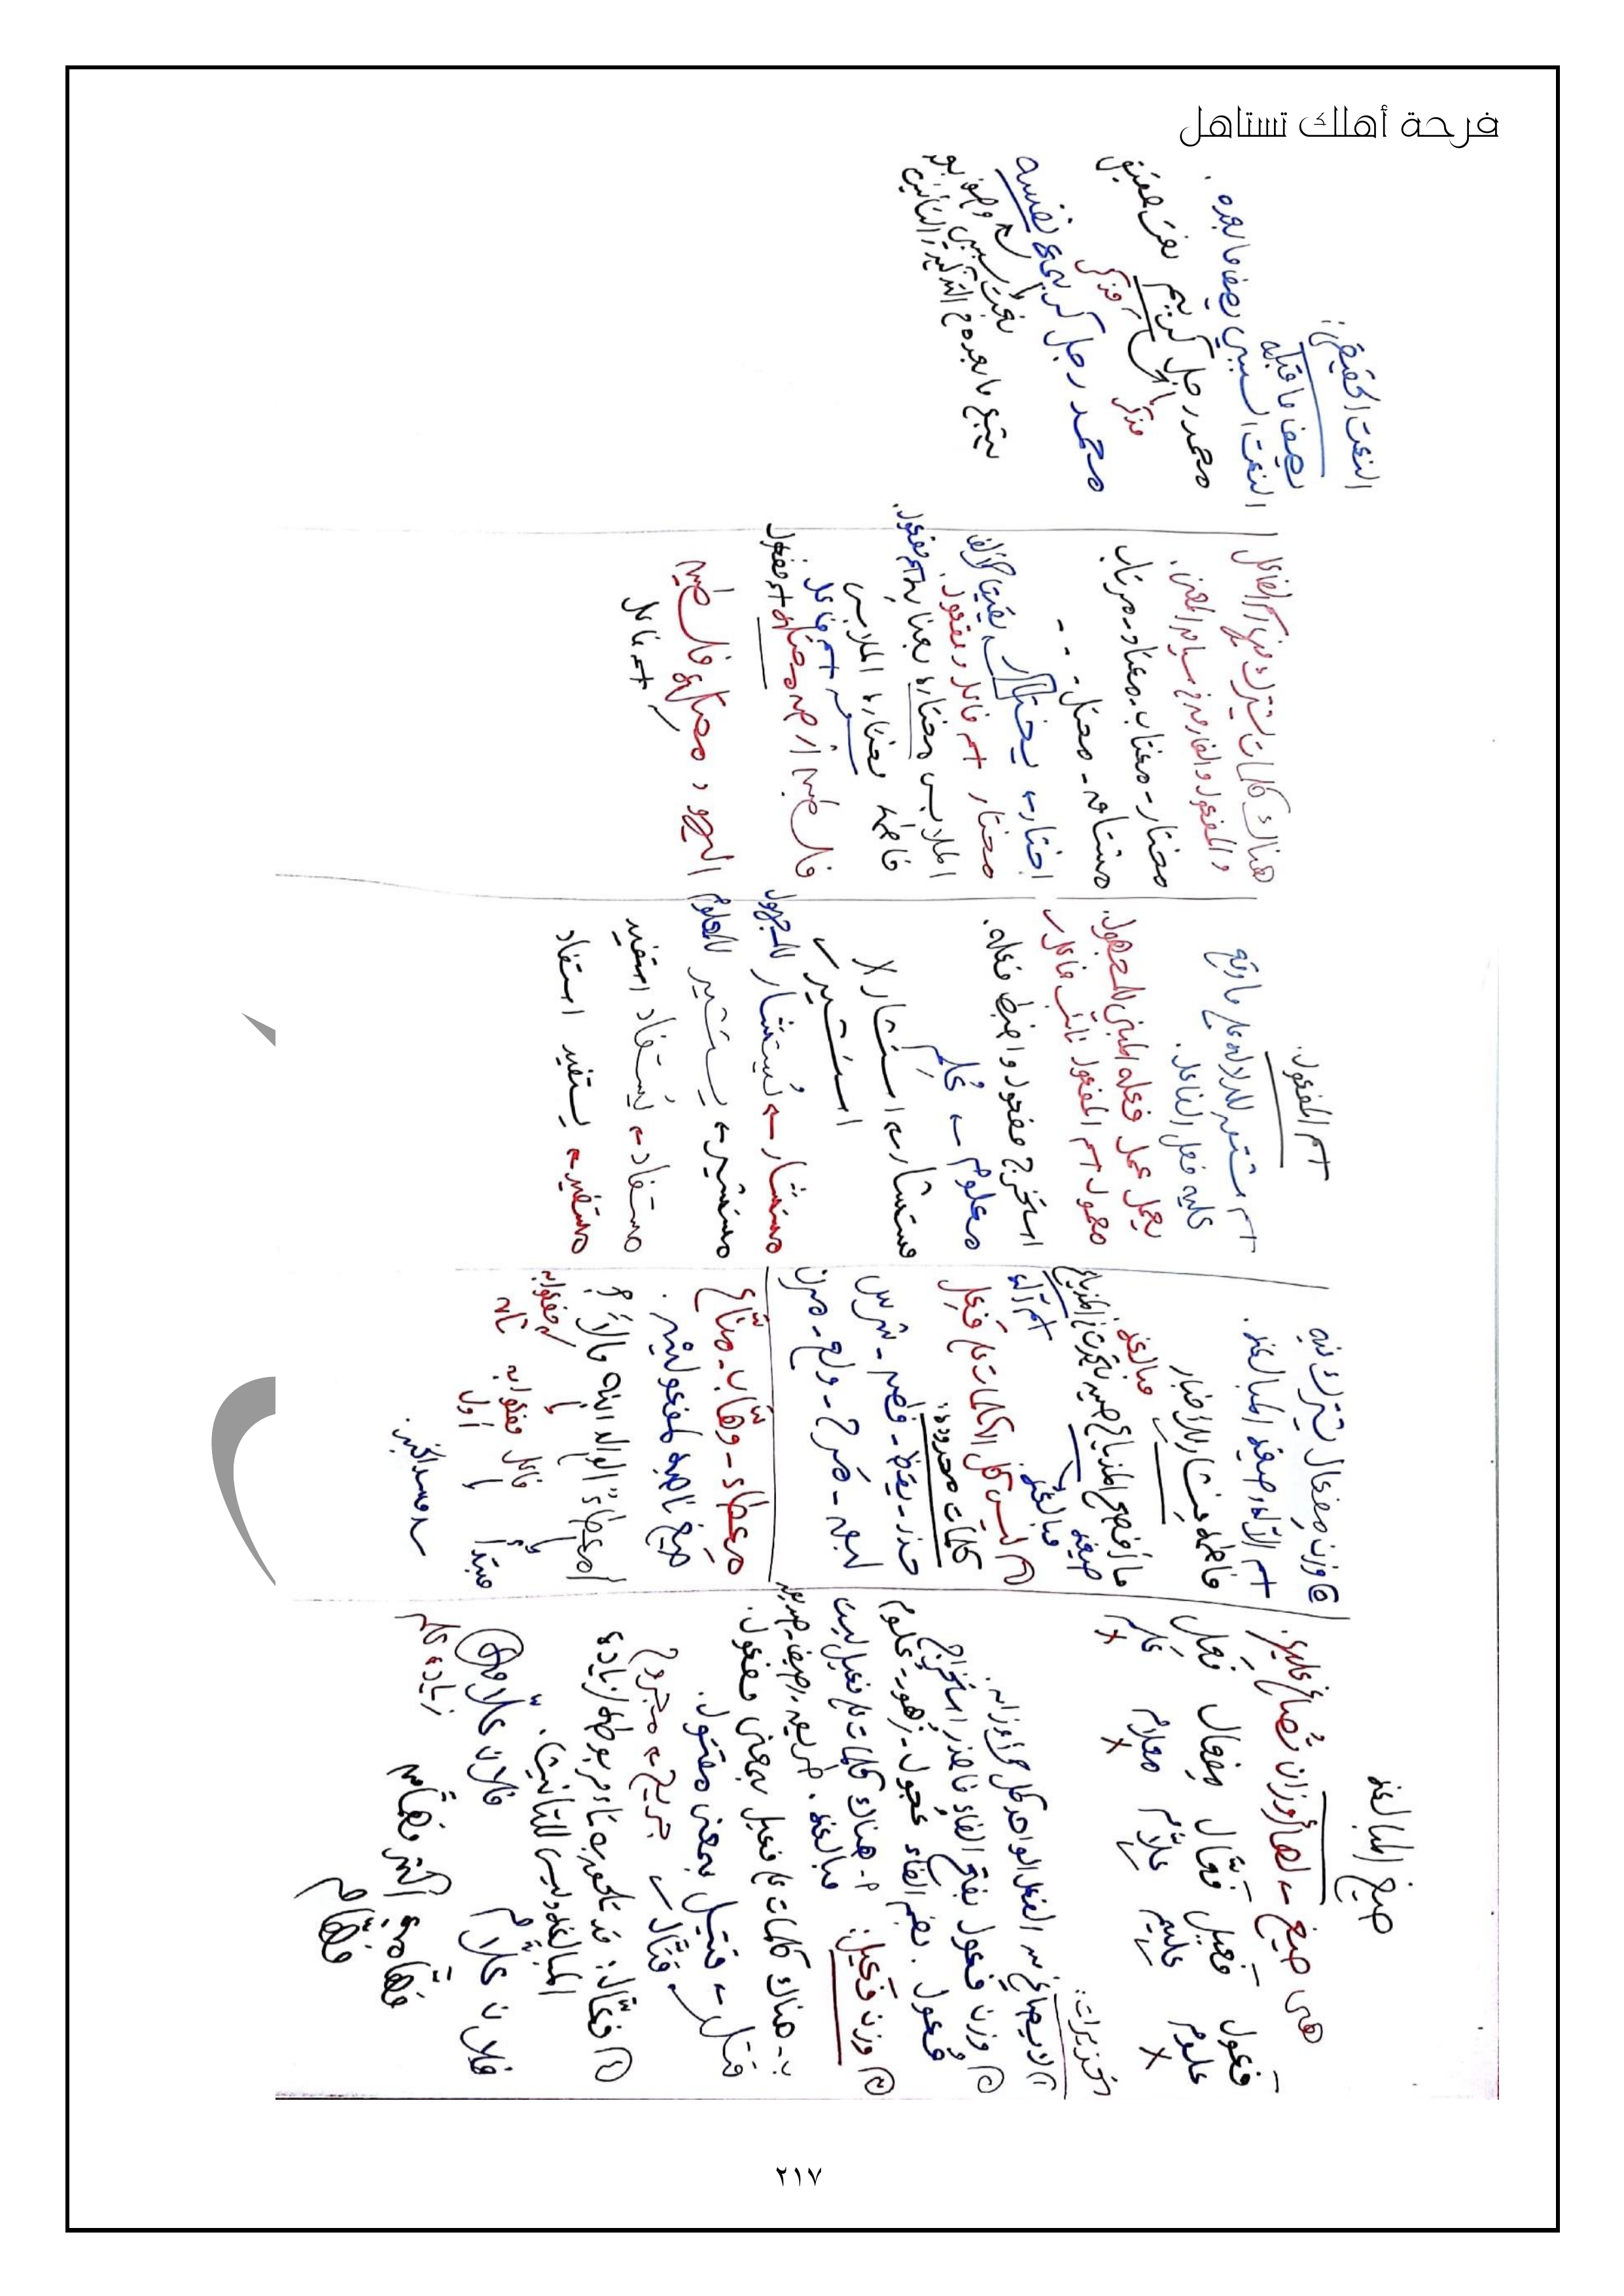 فرحة أهلك تستاهل
صيغ المبالغة
هى صيغ ← لها أوزان تُصاغ عليها.
فَعول فَعيل فعَّال مِفعال فَعِل
علوم عليم علَّام معلام عَلِم
x x x
تحذيرات:
١) لا يصاغ من الفعل الواحد كل أوزانه.
٢) وزن فَعول بفتح الفاء فاحذر استخراج
فُعول. بضم الفاء عجول - زهور - علوم
٣) وزن فعيل: ٢- هناك كلمات على فعيل ليست
مبالغة. طريق - رصيف - صديق
ب- هناك كلمات على فعيل بمعنى مفعول.
قتل ← قتيل بمعنى مقتول.
قتَّال جريح ← مجروح
٤) فعَّال: قد تلحق به تاء مربوطة زيادة
المبالغة وليس للتأنيث.
فلان علَّام فلان علَّامة
زيادة على
فهَّامة أكثر فهمًا من
فهَّام
٥) وزن مِفعال يشترك فيه
اسم الآلة وصيغة المبالغة.
فاطمة مِنشار للأخبار
مبالغة
ما أفصح المذياع حين تحدث في المذياع
صيغة مبالغة اسم آلة
٦) ليس كل الكلمات على فَعِل
كلمات محدودة:
حذر - يقظ - فطن - شرس
لبق - مَرِح - ولع - مرن
مِعطاء - وهَّاب - منَّاع
صيغ ناصبة لمفعولين.
أمعطاء الوالد ابنه مالًا؟
مبتدأ فاعل مفعول به أول مفعول به ثان
سد مسد الخبر.
اسم المفعول.
اسم مشتق للدلالة على ما وقع
عليه فعل الفاعل.
يعمل عمل فعله المبنى للمجهول.
معمول اسم المفعول نائب فاعل
استخرج مفعول واضبط فعله.
معلوم ← عُلِم
مستشار ← استَشار x
استُشير ✓
مستشار ← يُستشار للمجهول
مستشير ← يستشير للمعلوم
مستفاد ← يُستفاد استفيد
مستفيد ← يستفيد استفاد
هناك كلمات يشترك فيها اسم الفاعل
والمفعول والفارق في سياق المعنى.
مختار - مغتاب - معتاد - مرتاب
مشتاق - محتل - - -
اختار ← يختار ← بقيت الألف
مختار اسم فاعل ومفعول.
الملابس مختارة بعناية اسم مفعول.
فاطمة مختارة الملابس
اسم فاعل
فلسطين أرض محتلة اسم مفعول
اليهود محتلو فلسطين
اسم فاعل
النعت الحقيقي:
يصف ما قبله
النعت السببي يصف ما بعده.
محمد رجل كريم نعت حقيقي
مذكر مذكر
محمد رجل كريمة نفسه
نعت سببي وصف بعده
يتبع ما بعده في التذكير والتأنيث
٢١٧